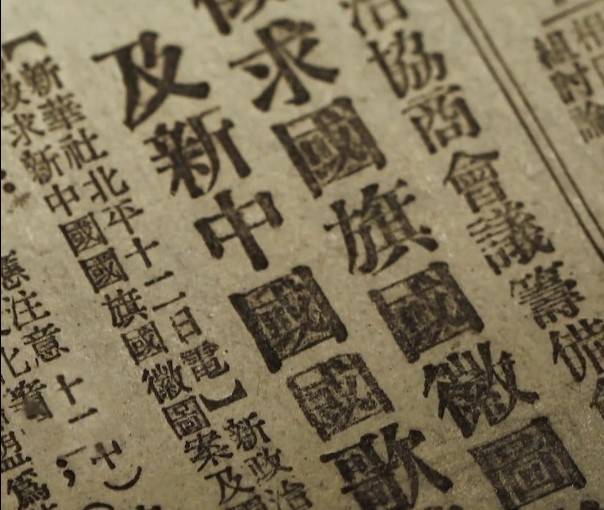 組討論
治協商會議籌備
求國旗國徽圖
及新中國國歌
【新華社北平十二日電】新政治
徵求新中國國旗國徽圖案及
注意
盟為